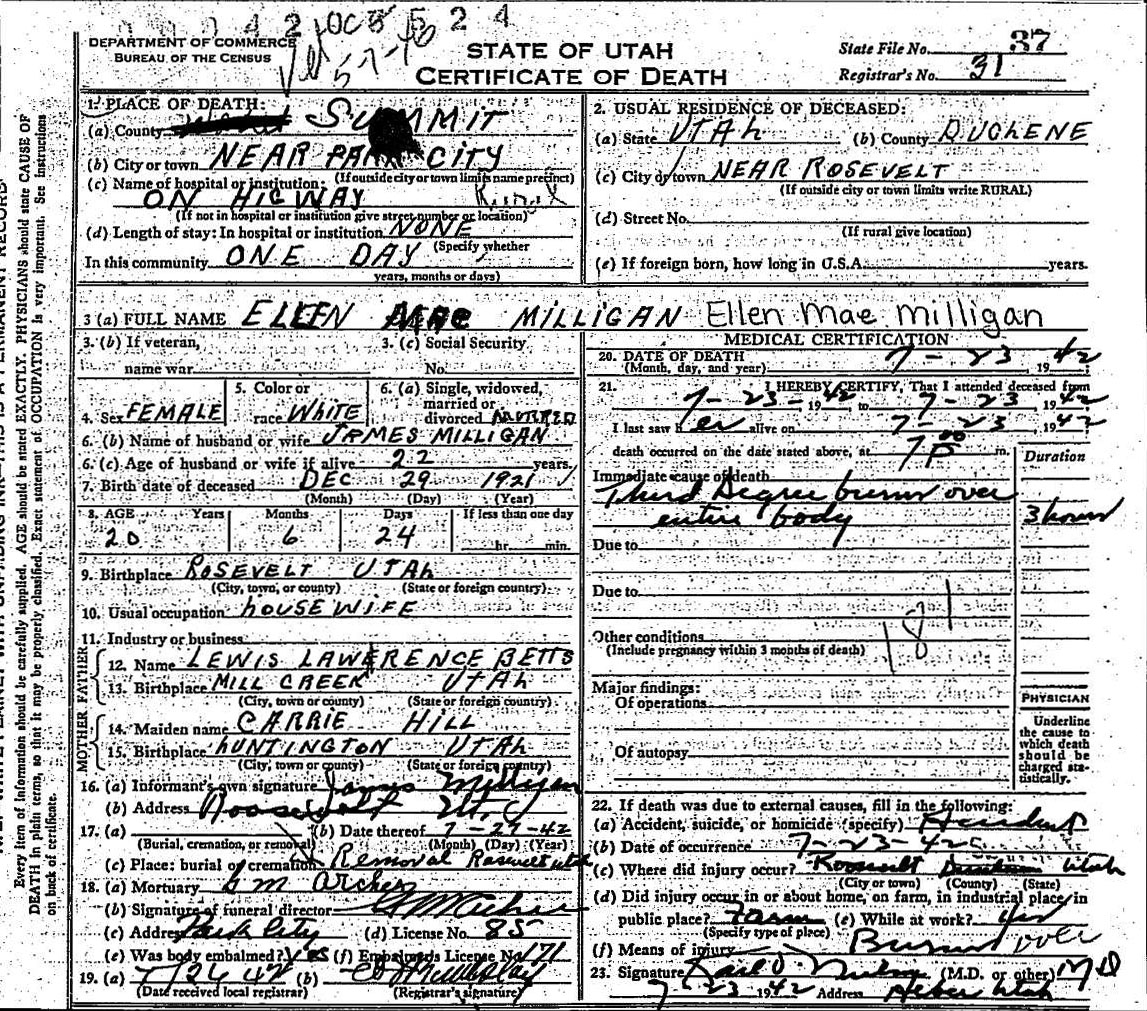 DEPARTMENT OF COMMERCE
BUREAU OF THE CENSUS
STATE OF UTAH
CERTIFICATE OF DEATH
State File No. 37
Registrar's No. 31
1. PLACE OF DEATH:
(a) County SUMMIT
(b) City or town NEAR PARK CITY
(If outside city or town limits name precinct)
(c) Name of hospital or institution: Rural
ON HIGWAY
(If not in hospital or institution give street number or location)
(d) Length of stay: In hospital or institution NONE
(Specify whether
In this community ONE DAY
years, months or days)
2. USUAL RESIDENCE OF DECEASED:
(a) State UTAH (b) County DUCHENE
(c) City or town NEAR ROSEVELT
(If outside city or town limits write RURAL)
(d) Street No.
(If rural give location)
(e) If foreign born, how long in U.S.A. years.
3 (a) FULL NAME ELLEN MAE MILLIGAN Ellen Mae Milligan
3. (b) If veteran,
name war
3. (c) Social Security
No.
4. Sex FEMALE
5. Color or
race WHITE
6. (a) Single, widowed,
married or
divorced MARRIED
6. (b) Name of husband or wife JAMES MILLIGAN
6. (c) Age of husband or wife if alive 22 years.
7. Birth date of deceased DEC 29 1921
(Month) (Day) (Year)
8. AGE Years Months Days If less than one day
20 6 24 hr. min.
9. Birthplace ROSEVELT UTAH
(City, town, or county) (State or foreign country)
10. Usual occupation HOUSEWIFE
11. Industry or business
FATHER
12. Name LEWIS LAWERENCE BETTS
13. Birthplace MILL CREEK UTAH
(City, town or county) (State or foreign country)
MOTHER
14. Maiden name CARRIE HILL
15. Birthplace HUNTINGTON UTAH
(City, town or county) (State or foreign country)
16. (a) Informant's own signature James Milligan
(b) Address Roosevelt
17. (a) (b) Date thereof 7-27-42
(Burial, cremation, or removal) (Month) (Day) (Year)
(c) Place: burial or cremation Removal Rosevelt Utah
18. (a) Mortuary Archer
(b) Signature of funeral director
(c) Address Park City (d) License No. 85
(e) Was body embalmed? Yes (f) Embalmers License No. 171
19. (a) 7/26 42 (b)
(Date received local registrar) (Registrar's signature)
MEDICAL CERTIFICATION
20. DATE OF DEATH 7-23 1942
(Month, day, and year)
21. I HEREBY CERTIFY, That I attended deceased from
7-23-1942 to 7-23 1942
I last saw her alive on 7-23 1942
death occurred on the date stated above, at 7 00 P m.
Duration
Immediate cause of death
Third Degree burns over
entire body 3 hours
Due to
Due to
Other conditions
(Include pregnancy within 3 months of death)
181
Major findings:
Of operations
Of autopsy
PHYSICIAN
Underline
the cause to
which death
should be
charged sta-
tistically.
22. If death was due to external causes, fill in the following:
(a) Accident, suicide, or homicide (specify) Accident
(b) Date of occurrence 7-23-42
(c) Where did injury occur? Roosevelt Utah
(City or town) (County) (State)
(d) Did injury occur in or about home, on farm, in industrial place, in
public place? Farm (e) While at work? yes
(Specify type of place)
(f) Means of injury Burns over
23. Signature (M.D. or other) MD
7 23 1942 Address Heber Utah
Every item of information should be carefully supplied. AGE should be stated EXACTLY. PHYSICIANS should state CAUSE OF
DEATH in plain terms, so that it may be properly classified. Exact statement of OCCUPATION is very important. See instructions
on back of certificate.